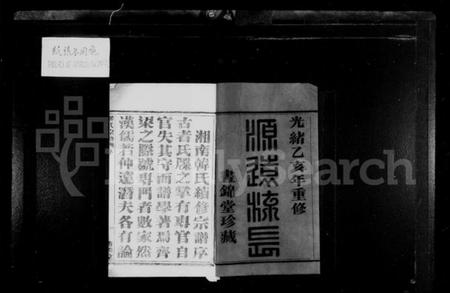 光緒乙亥年重修
源遠流長
晝錦堂珍藏
湘南韓氏續修宗譜序
古者氏牒之掌有專官自
官失其守而譜學著焉齊
梁之際號專門者數家然
漢儒若仲遠潛夫各有論
FamilySearch